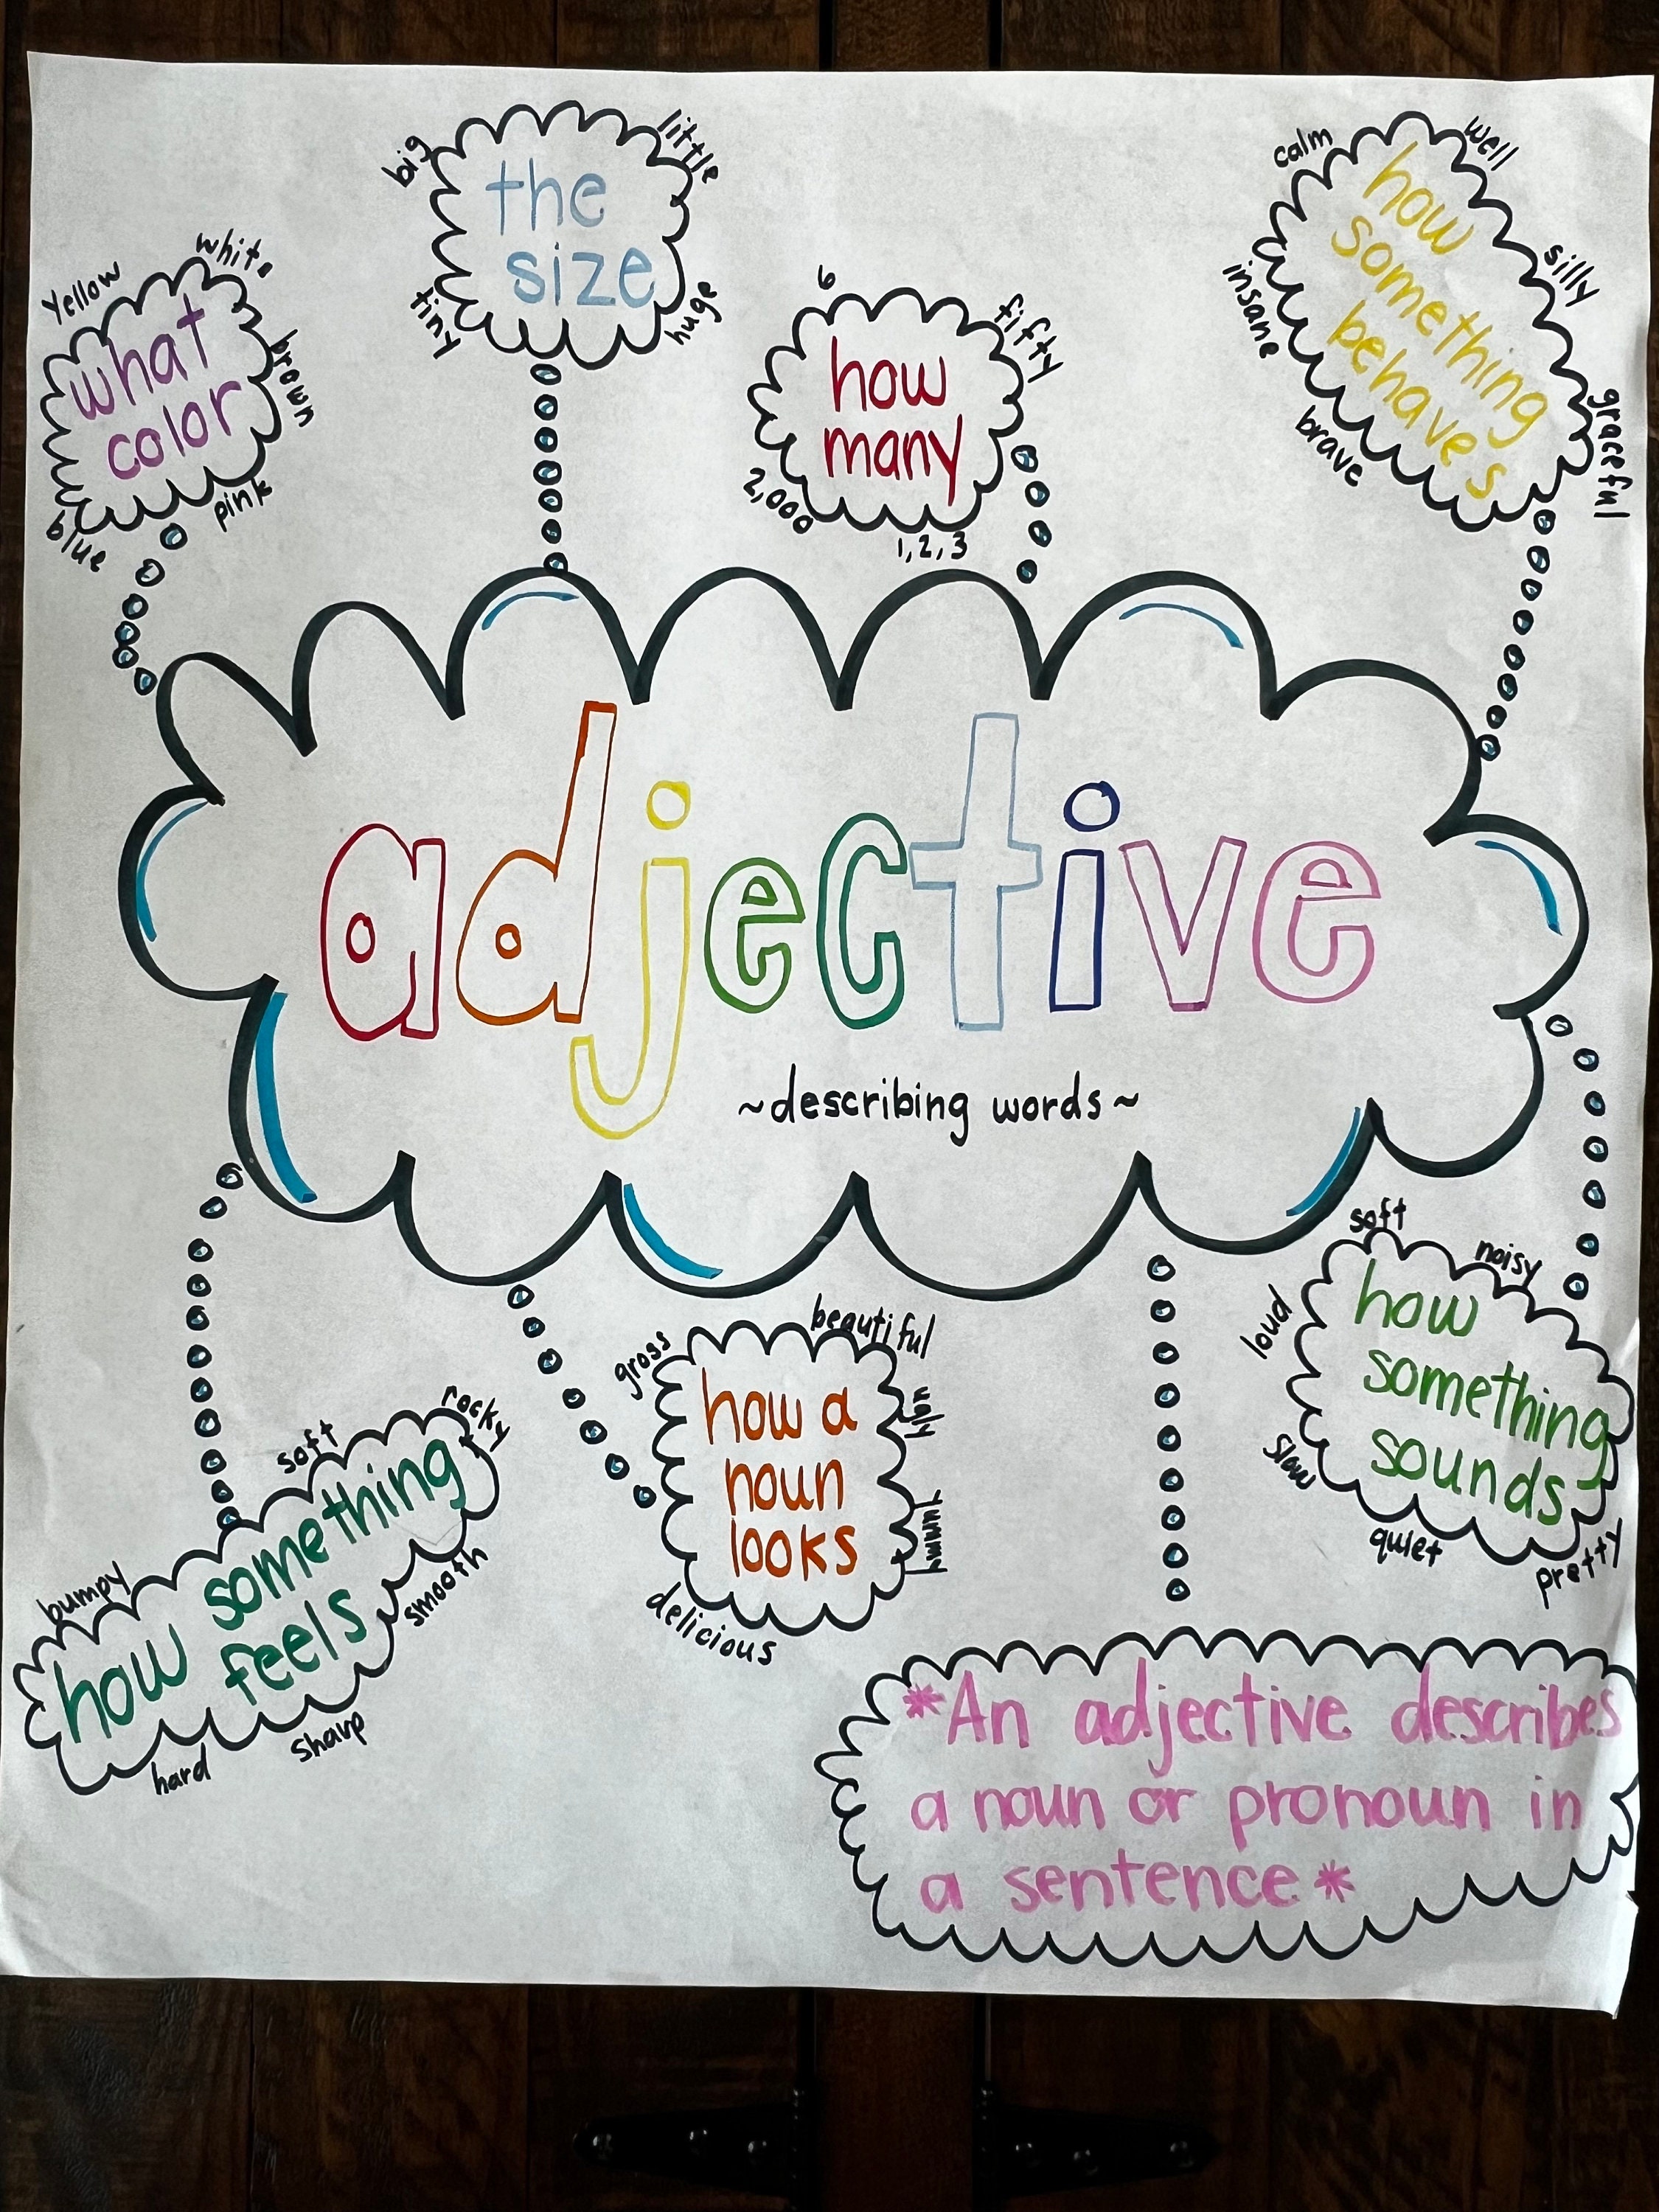 big
little
the
size
tiny
huge
calm
well
how
something
behaves
silly
insane
graceful
brave
Yellow
white
what
color
brown
blue
pink
6
fifty
how
many
2,000
1,2,3
adjective
~describing words~
soft
noisy
loud
how
something
sounds
slow
quiet
pretty
gross
beautiful
how a
noun
looks
ugly
yummy
delicious
soft
rocky
bumpy
how something
feels
smooth
hard
sharp
*An adjective describes
a noun or pronoun in
a sentence*